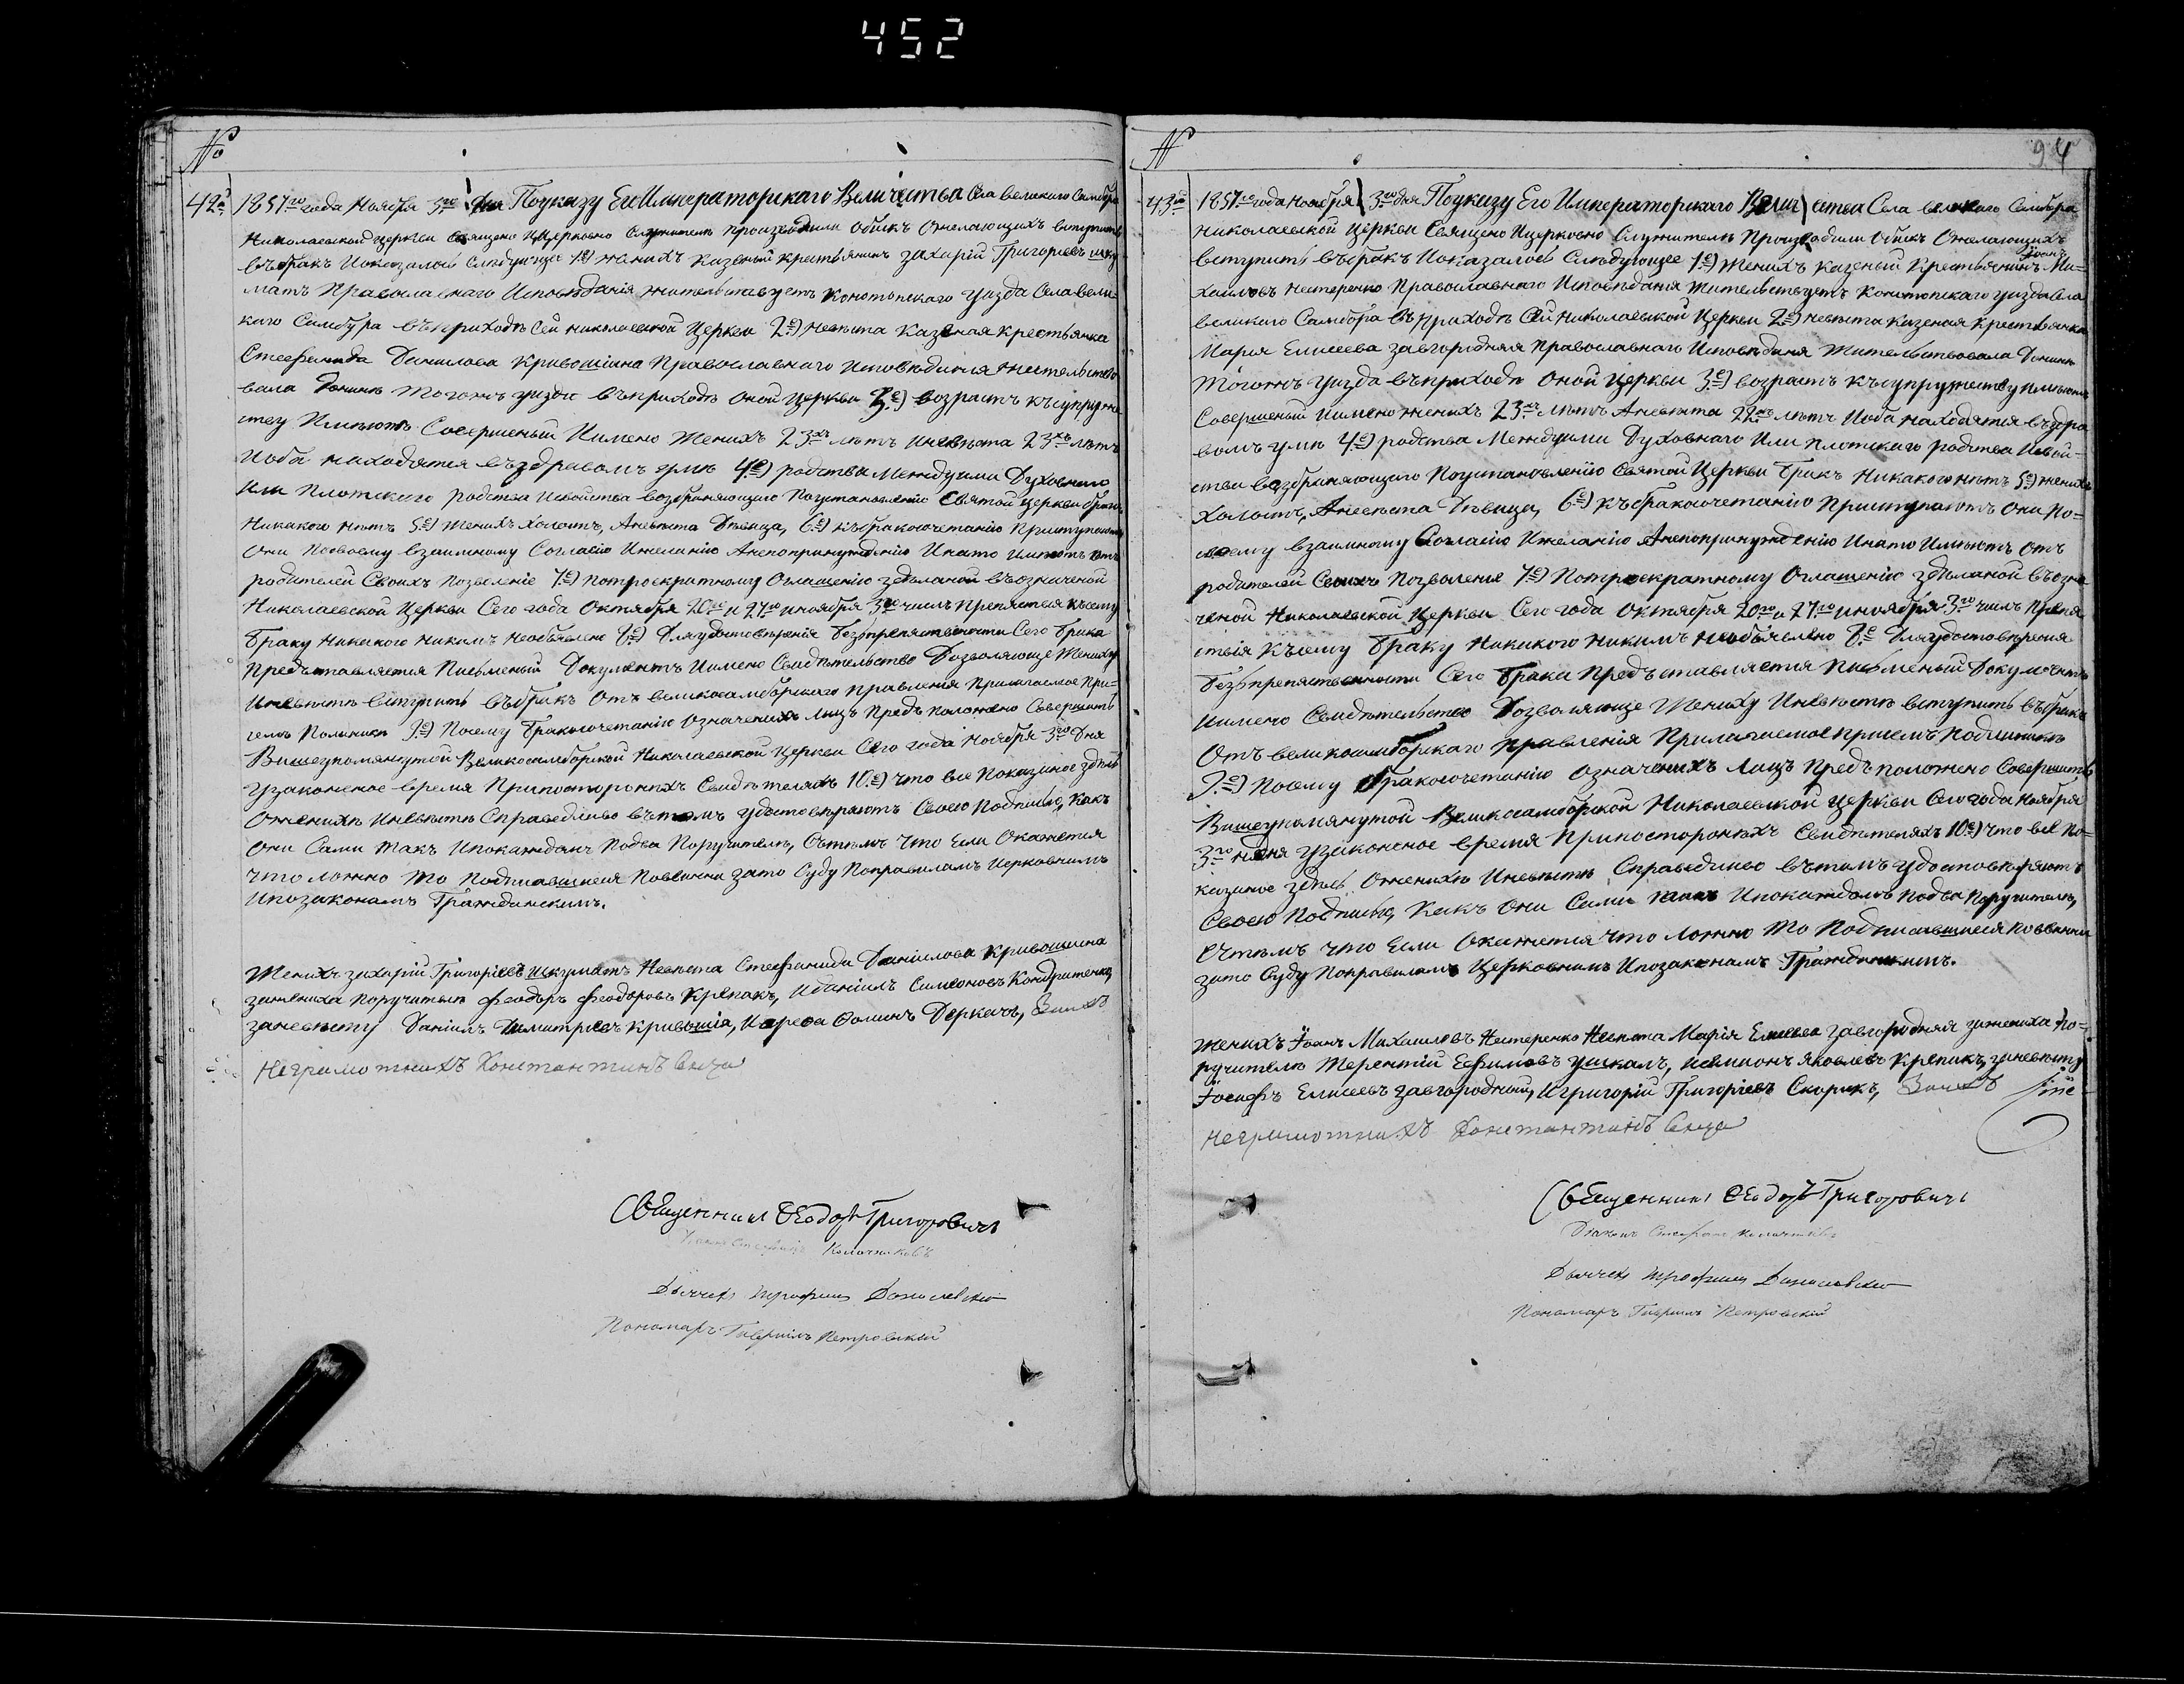 452
№
42й
1857го года Ноября 3го дня Поуказу Его Императорскаго Величества Села великого Самбора
Николаевской церкви Священо Ицерковно Служители производили обыскъ Ожелающихъ вступить
въбракъ Иоказалось Следующее 1е) женихъ казеный крестьянинъ захарій Григорьевъ шку
матъ Православнаго Исповѣданія жительствуетъ Конотопского уезда Села вели
кого Самбура въприходѣ Сей николаевской церкви 2е) невѣста казеная крестьянка
Стефанида Данилова Кривошіина Православнаго исповѣдания жительство
вала донинѣ тогожъ уезда въприходѣ оной церкви 3е) возрастъ къ супруже
ству Имѣютъ Совершеный Имено женихъ 23хъ лѣтъ Иневѣста 23хъ лѣтъ
Иоба находятся въздравомъ умѣ 4е) родства Междуими Духовнаго
или плотского родства Исвойства возбраняющаго Поустановленію Святой церкви бракъ
Никакого нѣтъ 5е) женихъ холостъ, Аневѣста Дѣвица, 6е) къбракосочетанію приступаютъ
Они Посвоему взаимному Согласію Ижеланію Анепопринужденію Инато имѣютъ отъ
родителей Своихъ Позволеніе 7е) Потроекратному Оглашенію здѣланой въозначеной
Николаевской Церкви Сего года Октября 20го и 27го иноября 3го числъ Препятствия къ сему
браку Никакого никимъ Необъявлено 8е) Для удостовѣренія безъпрепятственности Сего брака
Предъставляется Писменый Документъ Имено Свидѣтельство Дозволяюще Жениху
Иневѣстѣ вступить въбракъ Отъ великосамборскаго правления Прилагаемое При-
семъ Подлинникъ 9е) Посему бракосочетанію означенихъ лицъ Предъположено Совершить
Вишеупомянутой Великосамборской Николаевской церкви Сего года Ноября 3го Дня
Узаконеное время Припостороннихъ Свидѣтеляхъ 10е) что все Показаное здѣсь
Ожених Иневѣстѣ Справедливо въ томъ удостовѣряютъ Своею Подписью, Какъ
Они Сами такъ Ипокаждомъ Подва Поручителя, Сътѣмъ что Если Окажется
что ложно то Подписавшиеся Повинни зато Суду Поправиламъ Церковнимъ
Ипозаконамъ Гражданскимъ.
Женихъ захарій Григоріевъ шкуматъ Невѣста Стефанида Даніилова Кривошина
зажениха поручители Феодоръ Феодоровъ Крѣпакъ, Иданіилъ Симеоновъ Кондратенко,
заневѣсту Даніилъ Димитріевъ Кривошія, Иарефа Фоминъ Деркачъ,
Неграмотнихъ Константинъ
Священникъ Феодоръ Григоровичъ
Дьячекъ Трофимъ
Пономарь Гавріилъ Петровскій
№
94
43
1857го года Ноября 3го дня Поуказу Его Императорскаго Велич ества Села великого Самбора
николаевской церкви Священо Ицерковно Служители Производили Обыскъ Ожелающихъ
вступить въбракъ Иоказалось Слѣдующее 1е) Женихъ казеный Крестьянинъ Іоанъ Ми=
хаиловъ Нестеренко Православнаго Исповѣдания Жительствуетъ Конотопского уезда Села
великого Самбора въ приходѣ Сей Николаевской Церкви 2е) невѣста казеная Крестьянка
Мария Елисеева завгородняя Православнаго Исповѣдания Жительствовала Донинѣ
тогожъ уезда въприходѣ оной Церкви 3е) возрастъ къ супружеству имѣютъ
Совершеный Имено женихъ 23хъ лѣтъ Аневѣста 22хъ лѣтъ Иоба находятся въздра
вомъ умѣ 4е) родства Междуими Духовнаго Или плотскаго родства Исвой-
ства возбраняющаго Поустановленію Святой Церкви бракъ Никакого нѣтъ 5е) женихъ
Холостъ, Аневѣста Дѣвица, 6е) Къ бракосочетанію Приступаютъ Они По=
своему взаимному Согласію Ижеланію Анепопринужденію Инато Имѣютъ Отъ
родителей Своихъ Позволения 7е) Потроекратному Оглашенію здѣланой въозна
ченой Николаевской Церкви Сего года Октября 20го и 27го иноября 3го числъ Препя
тствія Къ сему браку Никакого никимъ необъявлено 8е Дляудостовѣрения
безъпрепятственности Сего брака Предъставляется Писменый Документъ
имено Свидѣтельство Дозволяюще Жениху Иневѣстѣ вступить въбракъ
Отъ великосамборскаго правленія Прилагаемое присемъ Подлинникъ
9е) Посему бракосочетанію означенихъ Лицъ Предъположено Совершить
Вишеупомянутой Великосамборской Николаевской церкви Сего года Ноября
3го Дня узаконеное время Припостороннихъ Свидѣтеляхъ 10е) что все По=
казаное здѣсь Ожених Иневѣстѣ Справедливо вътомъ удостовѣряютъ
Своею Подписью, Какъ Они Сами такъ Ипокаждомъ Подва Поручителя,
Сътѣмъ что Если Окажется что ложно то Подписавшиеся Повинни
зато Суду Поправиламъ Церковнимъ Ипозаконамъ Гражданскимъ.
Женихъ Іоанъ Михаиловъ Нестеренко Невѣста Марія Елисеева Завгородняя зажениха По=
ручителѣ Терентій Ефимовъ Ушкалъ, Исимионъ Яковлевъ Крѣпакъ, заневѣсту
Іосифъ Елисеевъ Завгородный, Игригорій Григоріевъ Скорикъ,
неграмотнихъ Константинъ
Священникъ Феодоръ Григоровичъ
Дьячекъ Трофимъ
Пономарь Гавріилъ Петровский